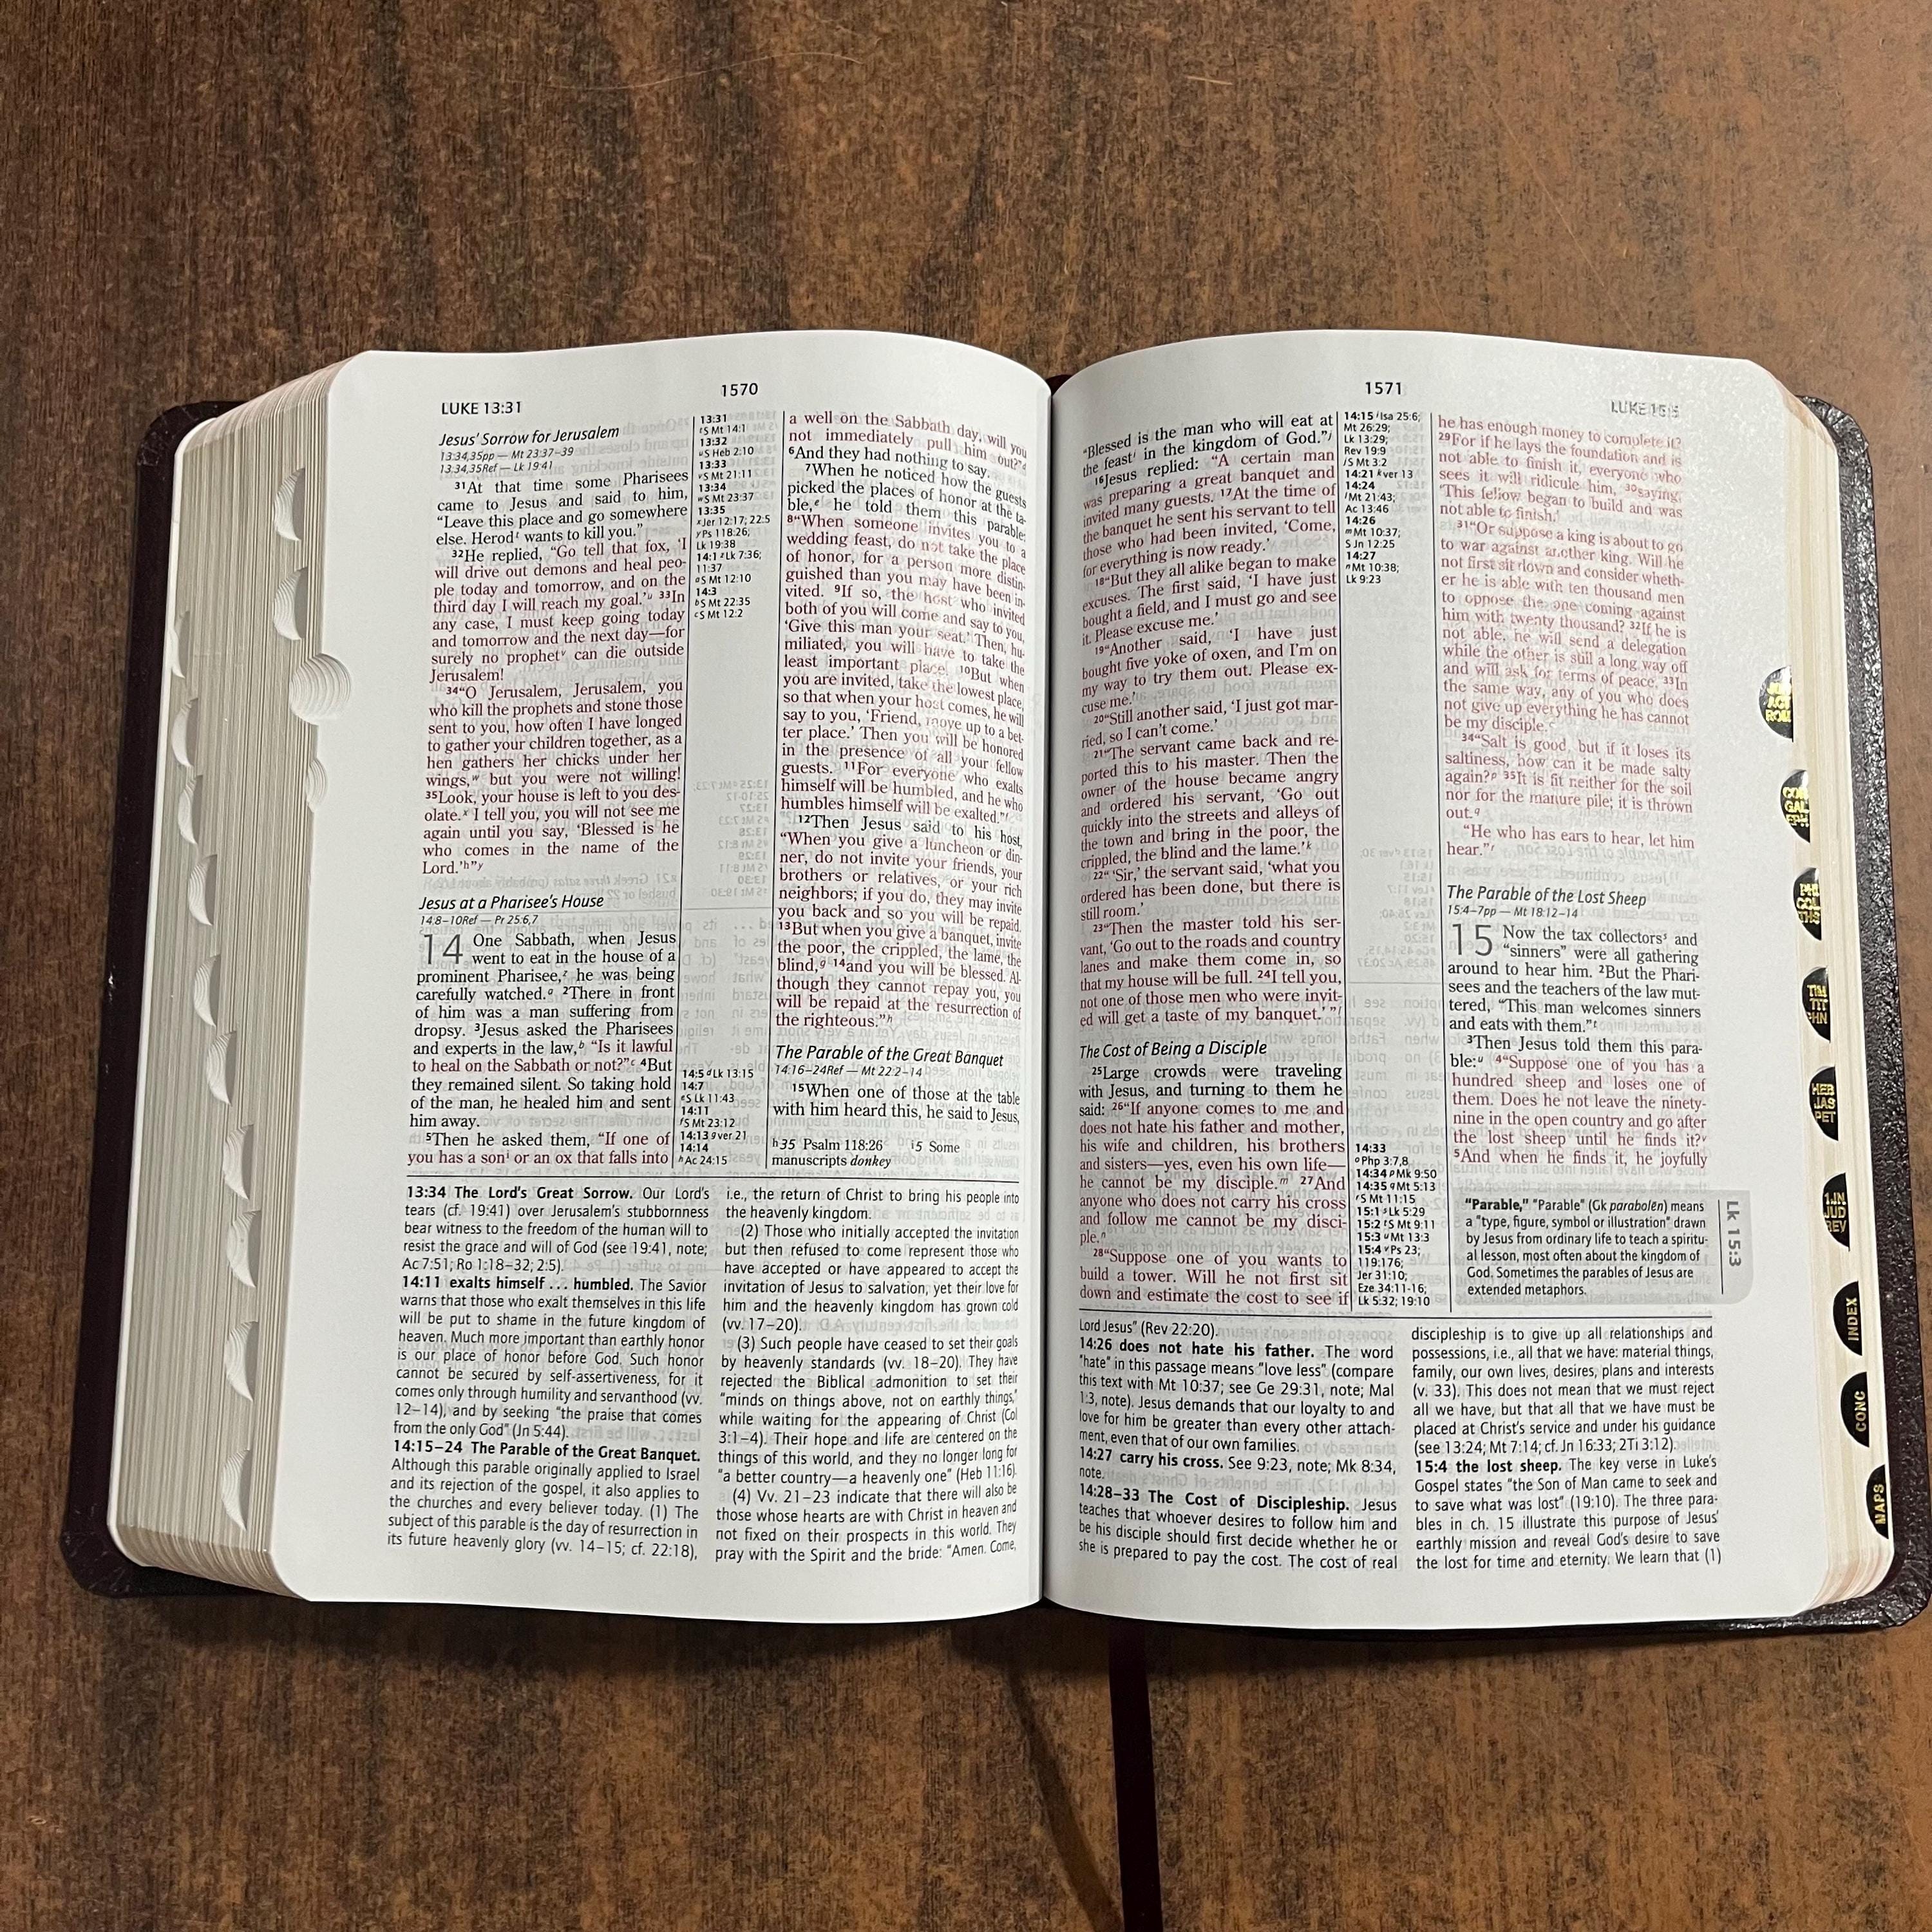 1570
LUKE 13:31
Jesus' Sorrow for Jerusalem
13:34,35pp — Mt 23:37–39
13:34,35Ref — Lk 19:41
31At that time some Pharisees
came to Jesus and said to him,
“Leave this place and go somewhere
else. Herodt wants to kill you.”
32He replied, “Go tell that fox, ‘I
will drive out demons and heal peo-
ple today and tomorrow, and on the
third day I will reach my goal.’u 33In
any case, I must keep going today
and tomorrow and the next day—for
surely no prophetv can die outside
Jerusalem!
34“O Jerusalem, Jerusalem, you
who kill the prophets and stone those
sent to you, how often I have longed
to gather your children together, as a
hen gathers her chicks under her
wings,w but you were not willing!
35Look, your house is left to you des-
olate.x I tell you, you will not see me
again until you say, ‘Blessed is he
who comes in the name of the
Lord.’h”y
Jesus at a Pharisee's House
14:8–10Ref — Pr 25:6,7
14 One Sabbath, when Jesus
went to eat in the house of a
prominent Pharisee,z he was being
carefully watched.a 2There in front
of him was a man suffering from
dropsy. 3Jesus asked the Pharisees
and experts in the law,b “Is it lawful
to heal on the Sabbath or not?”c 4But
they remained silent. So taking hold
of the man, he healed him and sent
him away.
5Then he asked them, “If one of
you has a soni or an ox that falls into
13:31
tS Mt 14:1
13:32
uS Heb 2:10
13:33
vS Mt 21:11
13:34
wS Mt 23:37
13:35
xJer 12:17; 22:5
yPs 118:26;
Lk 19:38
14:1 zLk 7:36;
11:37
aS Mt 12:10
14:3
bS Mt 22:35
cS Mt 12:2
14:5 dLk 13:15
14:7
eS Lk 11:43
14:11
fS Mt 23:12
14:13 gver 21
14:14
hAc 24:15
a well on the Sabbath day, will you
not immediately pull him out?”d
6And they had nothing to say.
7When he noticed how the guests
picked the places of honor at the ta-
ble,e he told them this parable:
8“When someone invites you to a
wedding feast, do not take the place
of honor, for a person more distin-
guished than you may have been in-
vited. 9If so, the host who invited
both of you will come and say to you,
‘Give this man your seat.’ Then, hu-
miliated, you will have to take the
least important place. 10But when
you are invited, take the lowest place,
so that when your host comes, he will
say to you, ‘Friend, move up to a bet-
ter place.’ Then you will be honored
in the presence of all your fellow
guests. 11For everyone who exalts
himself will be humbled, and he who
humbles himself will be exalted.”f
12Then Jesus said to his host,
“When you give a luncheon or din-
ner, do not invite your friends, your
brothers or relatives, or your rich
neighbors; if you do, they may invite
you back and so you will be repaid.
13But when you give a banquet, invite
the poor, the crippled, the lame, the
blind,g 14and you will be blessed. Al-
though they cannot repay you, you
will be repaid at the resurrection of
the righteous.”h
The Parable of the Great Banquet
14:16–24Ref — Mt 22:2–14
15When one of those at the table
with him heard this, he said to Jesus,
h35 Psalm 118:26 i5 Some
manuscripts donkey
13:34 The Lord's Great Sorrow. Our Lord's
tears (cf. 19:41) over Jerusalem's stubbornness
bear witness to the freedom of the human will to
resist the grace and will of God (see 19:41, note;
Ac 7:51; Ro 1:18–32; 2:5).
14:11 exalts himself ... humbled. The Savior
warns that those who exalt themselves in this life
will be put to shame in the future kingdom of
heaven. Much more important than earthly honor
is our place of honor before God. Such honor
cannot be secured by self-assertiveness, for it
comes only through humility and servanthood (vv.
12–14), and by seeking “the praise that comes
from the only God” (Jn 5:44).
14:15–24 The Parable of the Great Banquet.
Although this parable originally applied to Israel
and its rejection of the gospel, it also applies to
the churches and every believer today. (1) The
subject of this parable is the day of resurrection in
its future heavenly glory (vv. 14–15; cf. 22:18),
i.e., the return of Christ to bring his people into
the heavenly kingdom.
(2) Those who initially accepted the invitation
but then refused to come represent those who
have accepted or have appeared to accept the
invitation of Jesus to salvation, yet their love for
him and the heavenly kingdom has grown cold
(vv. 17–20).
(3) Such people have ceased to set their goals
by heavenly standards (vv. 18–20). They have
rejected the Biblical admonition to set their
“minds on things above, not on earthly things,”
while waiting for the appearing of Christ (Col
3:1–4). Their hope and life are centered on the
things of this world, and they no longer long for
“a better country—a heavenly one” (Heb 11:16).
(4) Vv. 21–23 indicate that there will also be
those whose hearts are with Christ in heaven and
not fixed on their prospects in this world. They
pray with the Spirit and the bride: “Amen. Come,
1571
LUKE 15:5
“Blessed is the man who will eat at
the feasti in the kingdom of God.”j
16Jesus replied: “A certain man
was preparing a great banquet and
invited many guests. 17At the time of
the banquet he sent his servant to tell
those who had been invited, ‘Come,
for everything is now ready.’
18“But they all alike began to make
excuses. The first said, ‘I have just
bought a field, and I must go and see
it. Please excuse me.’
19“Another said, ‘I have just
bought five yoke of oxen, and I'm on
my way to try them out. Please ex-
cuse me.’
20“Still another said, ‘I just got mar-
ried, so I can't come.’
21“The servant came back and re-
ported this to his master. Then the
owner of the house became angry
and ordered his servant, ‘Go out
quickly into the streets and alleys of
the town and bring in the poor, the
crippled, the blind and the lame.’k
22“ ‘Sir,’ the servant said, ‘what you
ordered has been done, but there is
still room.’
23“Then the master told his ser-
vant, ‘Go out to the roads and country
lanes and make them come in, so
that my house will be full. 24I tell you,
not one of those men who were invit-
ed will get a taste of my banquet.’ ”l
The Cost of Being a Disciple
25Large crowds were traveling
with Jesus, and turning to them he
said: 26“If anyone comes to me and
does not hate his father and mother,
his wife and children, his brothers
and sisters—yes, even his own life—
he cannot be my disciple.m 27And
anyone who does not carry his cross
and follow me cannot be my disci-
ple.n
28“Suppose one of you wants to
build a tower. Will he not first sit
down and estimate the cost to see if
14:15 iIsa 25:6;
Mt 26:29;
Lk 13:29;
Rev 19:9
jS Mt 3:2
14:21 kver 13
14:24
lMt 21:43;
Ac 13:46
14:26
mMt 10:37;
S Jn 12:25
14:27
nMt 10:38;
Lk 9:23
14:33
oPhp 3:7,8
14:34 pMk 9:50
14:35 qMt 5:13
rS Mt 11:15
15:1 sLk 5:29
15:2 tS Mt 9:11
15:3 uMt 13:3
15:4 vPs 23;
119:176;
Jer 31:10;
Eze 34:11-16;
Lk 5:32; 19:10
he has enough money to complete it?
29For if he lays the foundation and is
not able to finish it, everyone who
sees it will ridicule him, 30saying,
‘This fellow began to build and was
not able to finish.’
31“Or suppose a king is about to go
to war against another king. Will he
not first sit down and consider wheth-
er he is able with ten thousand men
to oppose the one coming against
him with twenty thousand? 32If he is
not able, he will send a delegation
while the other is still a long way off
and will ask for terms of peace. 33In
the same way, any of you who does
not give up everything he has cannot
be my disciple.o
34“Salt is good, but if it loses its
saltiness, how can it be made salty
again?p 35It is fit neither for the soil
nor for the manure pile; it is thrown
out.q
“He who has ears to hear, let him
hear.”r
The Parable of the Lost Sheep
15:4–7pp — Mt 18:12–14
15 Now the tax collectorss and
“sinners” were all gathering
around to hear him. 2But the Phari-
sees and the teachers of the law mut-
tered, “This man welcomes sinners
and eats with them.”t
3Then Jesus told them this para-
ble:u 4“Suppose one of you has a
hundred sheep and loses one of
them. Does he not leave the ninety-
nine in the open country and go after
the lost sheep until he finds it?v
5And when he finds it, he joyfully
“Parable,” “Parable” (Gk parabolēn) means
a “type, figure, symbol or illustration” drawn
by Jesus from ordinary life to teach a spiritu-
al lesson, most often about the kingdom of
God. Sometimes the parables of Jesus are
extended metaphors.
Lk 15:3
Lord Jesus” (Rev 22:20).
14:26 does not hate his father. The word
“hate” in this passage means “love less” (compare
this text with Mt 10:37; see Ge 29:31, note; Mal
1:3, note). Jesus demands that our loyalty to and
love for him be greater than every other attach-
ment, even that of our own families.
14:27 carry his cross. See 9:23, note; Mk 8:34,
note.
14:28–33 The Cost of Discipleship. Jesus
teaches that whoever desires to follow him and
be his disciple should first decide whether he or
she is prepared to pay the cost. The cost of real
discipleship is to give up all relationships and
possessions, i.e., all that we have: material things,
family, our own lives, desires, plans and interests
(v. 33). This does not mean that we must reject
all we have, but that all that we have must be
placed at Christ's service and under his guidance
(see 13:24; Mt 7:14; cf. Jn 16:33; 2Ti 3:12).
15:4 the lost sheep. The key verse in Luke's
Gospel states “the Son of Man came to seek and
to save what was lost” (19:10). The three para-
bles in ch. 15 illustrate this purpose of Jesus'
earthly mission and reveal God's desire to save
the lost for time and eternity. We learn that (1)
ACT
ROM
COR
GAL
EPH
PHI
COL
THS
TIM
TIT
PHN
HEB
JAS
PET
1JN
JUD
REV
INDEX
CONC
MAPS